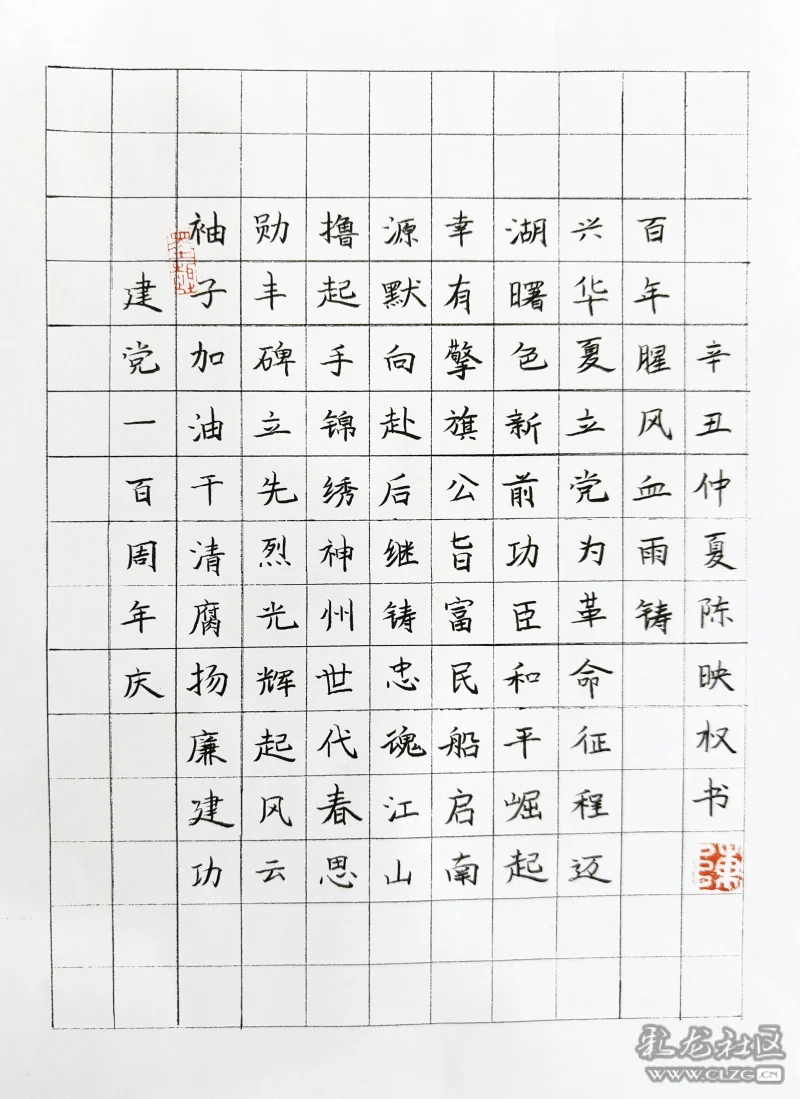 建党一百周年庆
袖子加油干清腐扬廉建功
勋丰碑立先烈光辉起风云
撸起手锦绣神州世代春思
源默向赴后继铸忠魂江山
幸有擎旗公旨富民船启南
湖曙色新前功臣和平崛起
兴华夏立党为革命征程迈
百年腥风血雨铸
辛丑仲夏陈映权书
乳龙社区
WWW.CLZG.CN